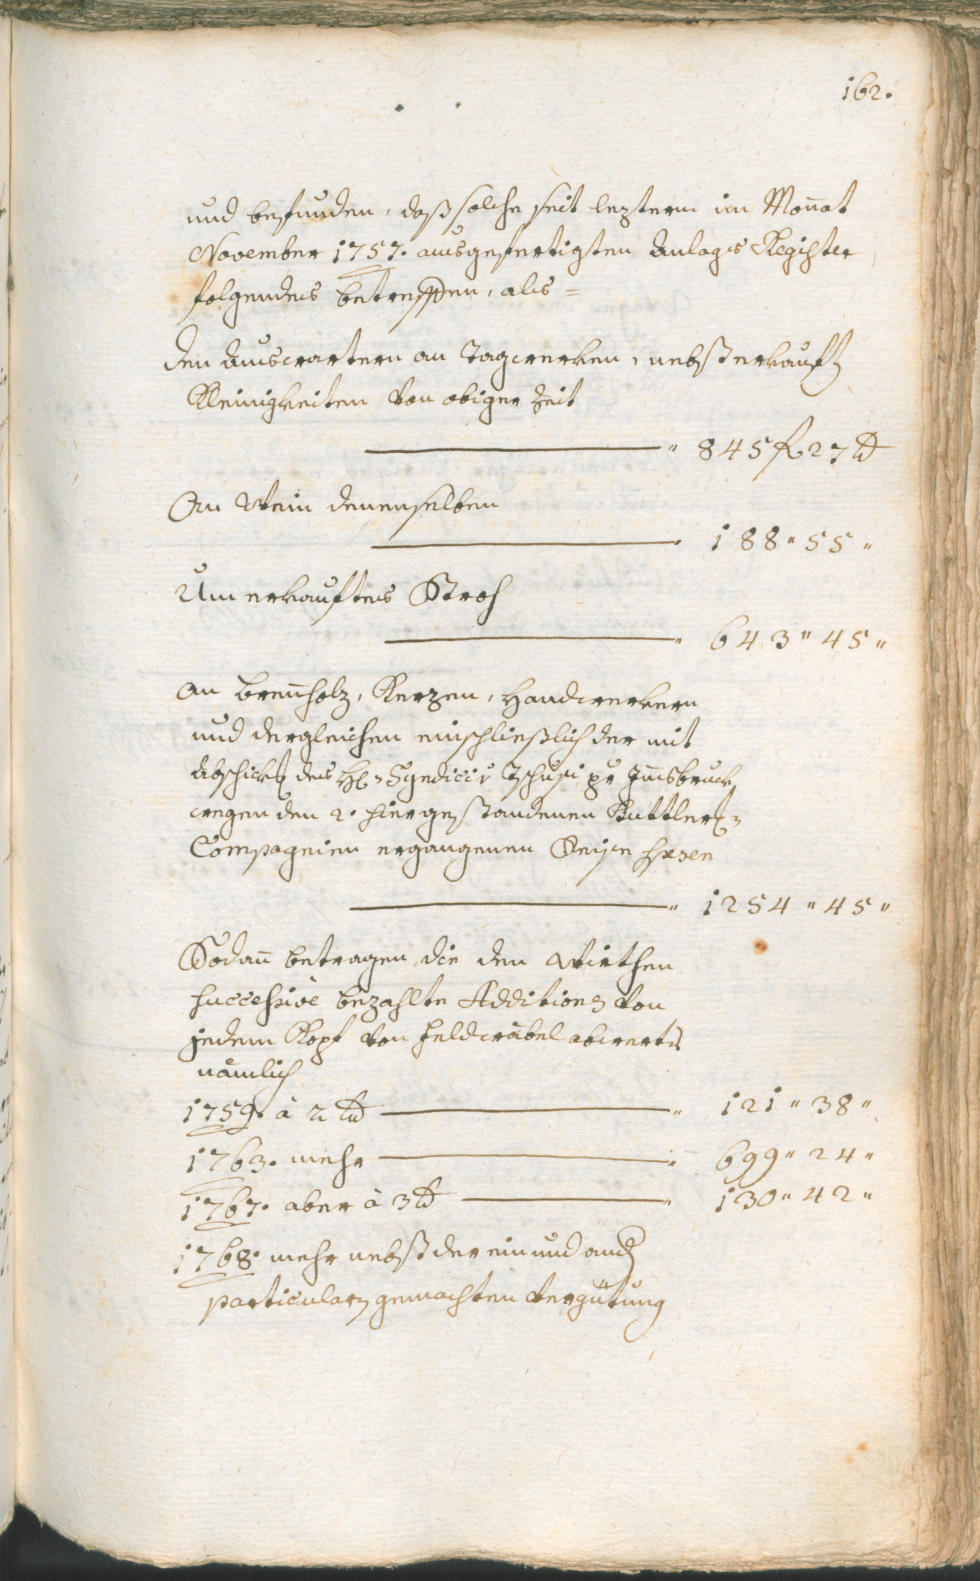 162.
und befunden, daß solche seit leztern im Monat
November 1757. ausgefertigten Anlags Register
folgendes betreffen, als =
den Quiswartern an Tagwerken, nebst erkauft
Kleinigkeiten von obiger Zeit
" 845 f 27 xr
An Wein denenselben
" 188 " 55 "
Um erkauftes Stroh
" 643 " 45 "
An Brennholz, Kerzen, Handwerkern
und dergleichen einschließlich der mit
Abschick des H: Syndicii Tschusi pr Innsbruck
wegen den 2. hier gestandenen Buttler
Compagnien ergangenen Reise
" 1254 " 45 "
Sodann betragen die den Wirthen
successive bezahlte Additions von
jedem Kopf von Feldwäbel abwerts
nämlich
1759. à 2 xr " 121 " 38 "
1763. mehr " 699 " 24 "
1767. aber à 3 xr " 130 " 42 "
1768. mehr nebst der ein und and
particular gemachten Vergütung